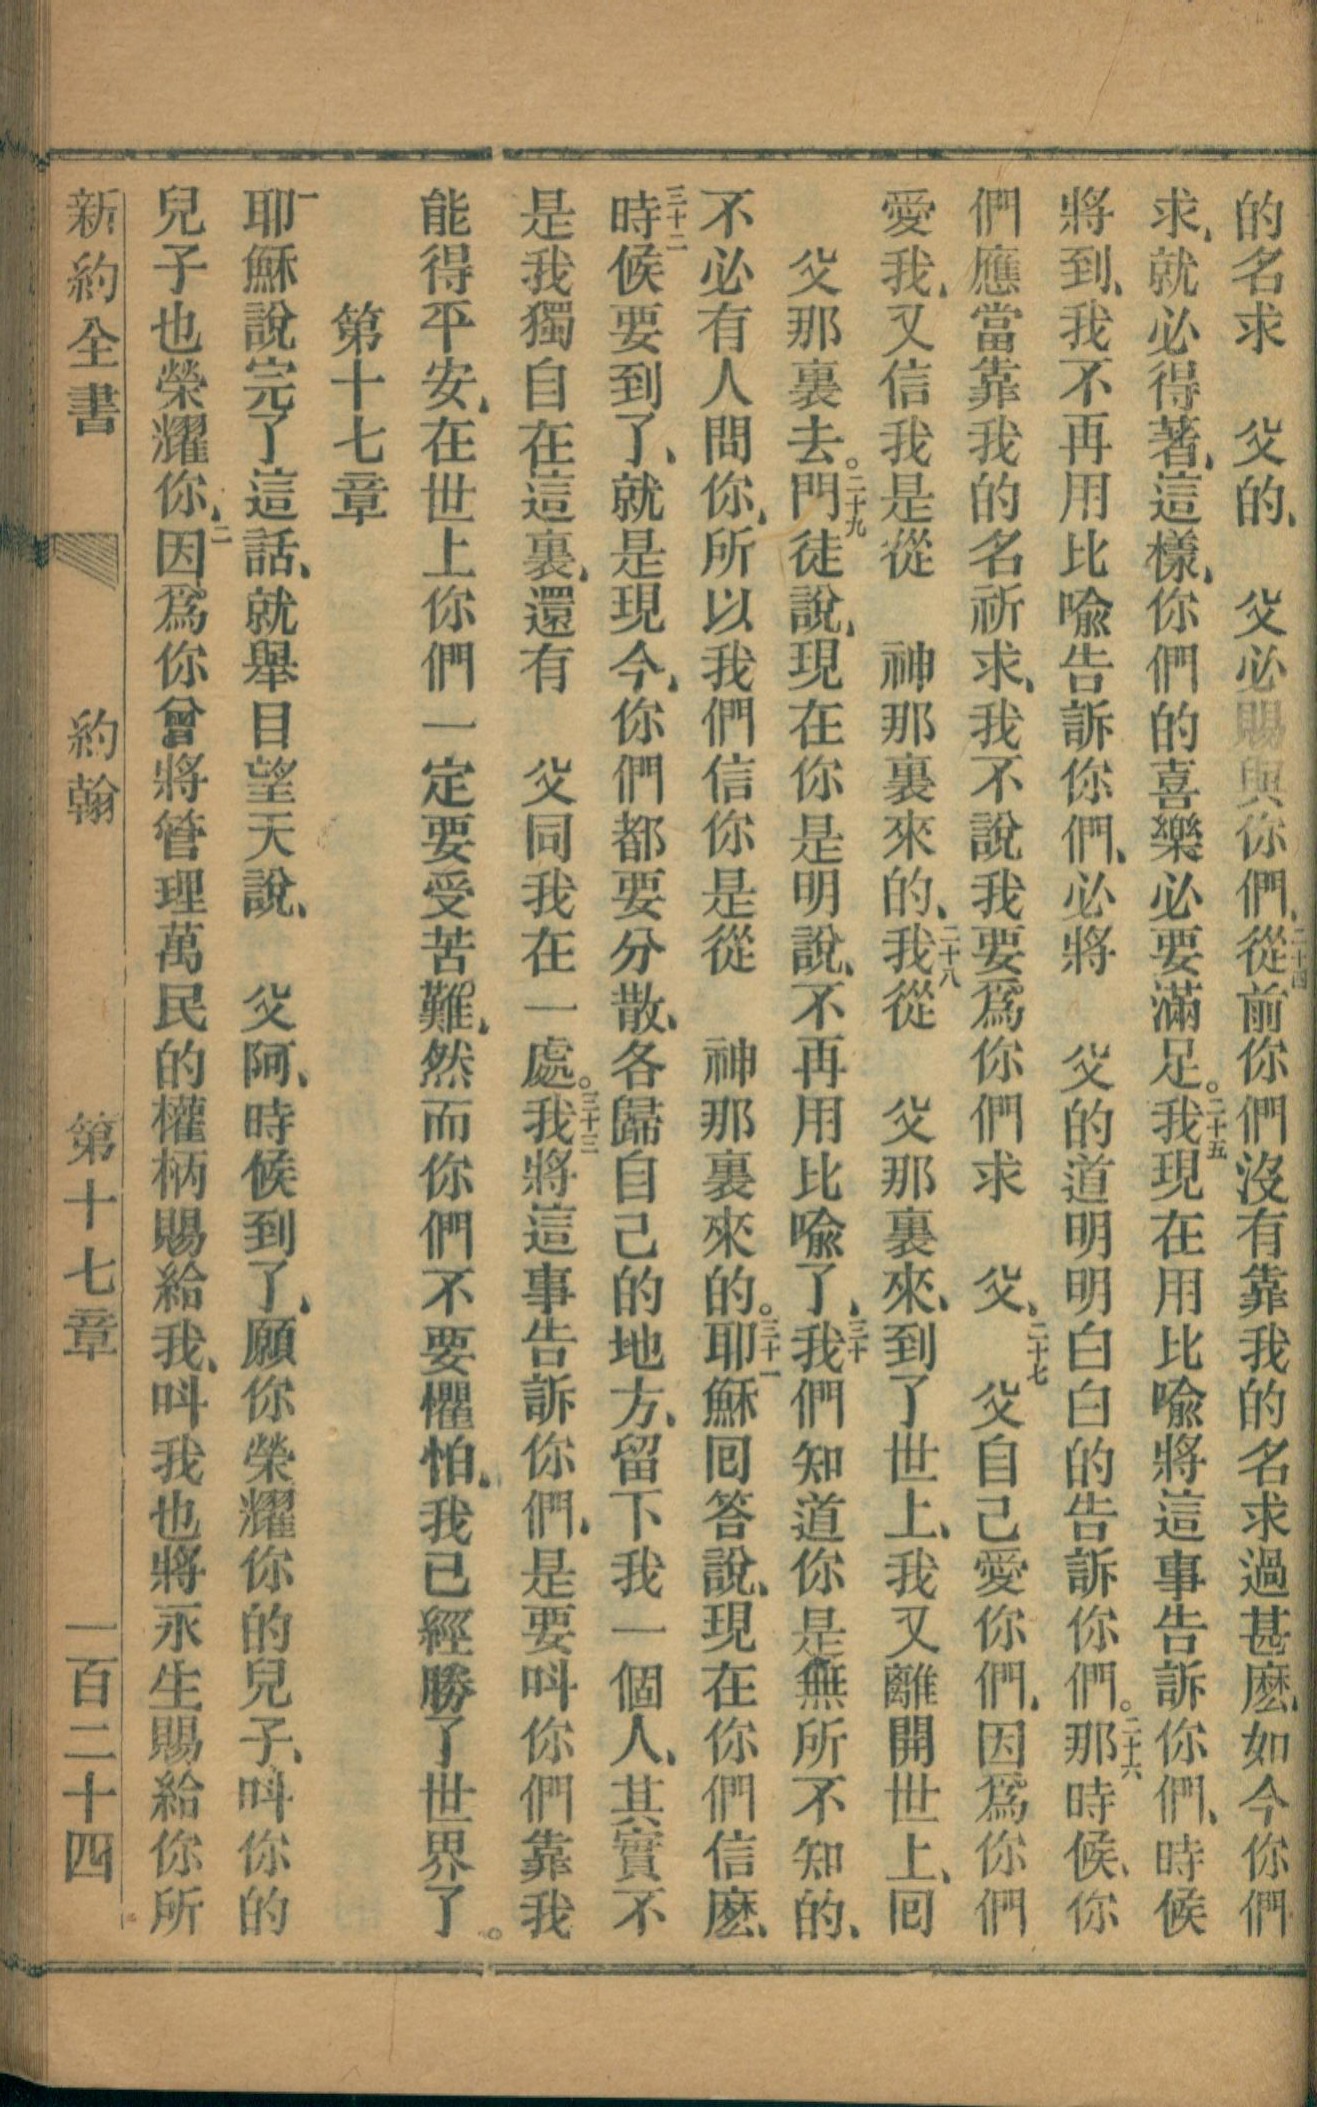 的名求　父的、　父必賜與你們、二十四從前你們沒有靠我的名求過甚麽、如今你們
求、就必得著、這樣、你們的喜樂必要滿足。二十五我現在用比喩將這事告訴你們、時候
將到、我不再用比喩告訴你們、必將　父的道明明白白的告訴你們。二十六那時候、你
們應當靠我的名祈求、我不說我要爲你們求　父、二十七　父自己愛你們、因爲你們
愛我、又信我是從　神那裏來的、二十八我從　父那裏來、到了世上、我又離開世上、囘
　父那裏去。二十九門徒說、現在你是明說、不再用比喩了、三十我們知道你是無所不知的、
不必有人問你、所以我們信你是從　神那裏來的。三十一耶穌囘答說、現在你們信麽、
三十二時候要到了、就是現今、你們都要分散、各歸自己的地方、留下我一個人、其實不
是我獨自在這裏、還有　父同我在一處。三十三我將這事告訴你們、是要呌你們靠我
能得平安、在世上你們一定要受苦難、然而你們不要懼怕、我已經勝了世界了。
第十七章
一耶穌說完了這話、就舉目望天說、　父阿、時候到了、願你榮耀你的兒子、呌你的
兒子也榮耀你、二因爲你曾將管理萬民的權柄賜給我、呌我也將永生賜給你所
新約全書　約翰　第十七章　一百二十四